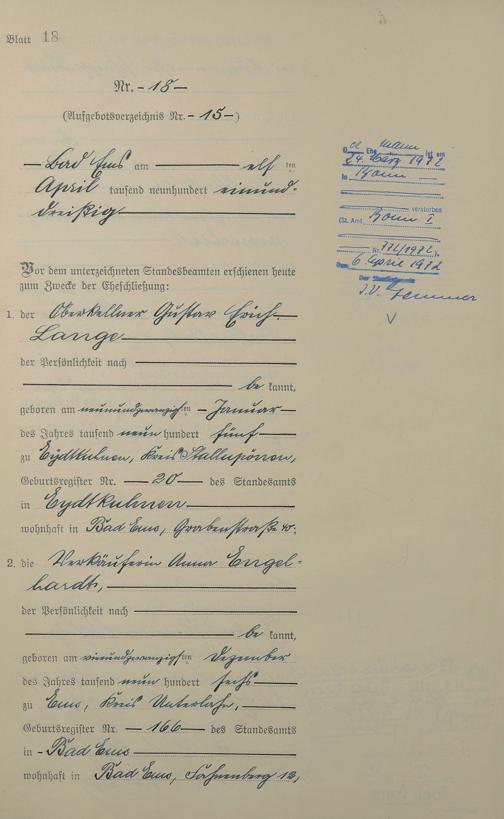 Blatt 18
Nr. - 18 -
(Aufgebotsverzeichnis Nr. - 15 -)
Bad Ems am elf ten
April tausend neunhundert einund-
dreißig
Vor dem unterzeichneten Standesbeamten erschienen heute
zum Zwecke der Eheschließung:
1. der Oberkellner Gustav Erich
Lange
der Persönlichkeit nach
be kannt,
geboren am neunundzwanzigsten Januar
des Jahres tausend neun hundert fünf
zu Eydtkuhnen, Kreis Stallupönen,
Geburtsregister Nr. 20 des Standesamts
in Eydtkuhnen
wohnhaft in Bad Ems, Grabenstraße
2. die Verkäuferin Anna Engel-
hardt,
der Persönlichkeit nach
be kannt,
geboren am vierundzwanzigsten Dezember
des Jahres tausend neun hundert sechs
zu Ems, Kreis Unterlahn,
Geburtsregister Nr. 166 des Standesamts
in Bad Ems
wohnhaft in Bad Ems, Fahnenberg 12,
D. Ehemann ist am
24. März 1972
in Bonn
verstorben
(St. Amt Bonn I
Nr. 772/1972).
6. April 1972
Der
I.V.